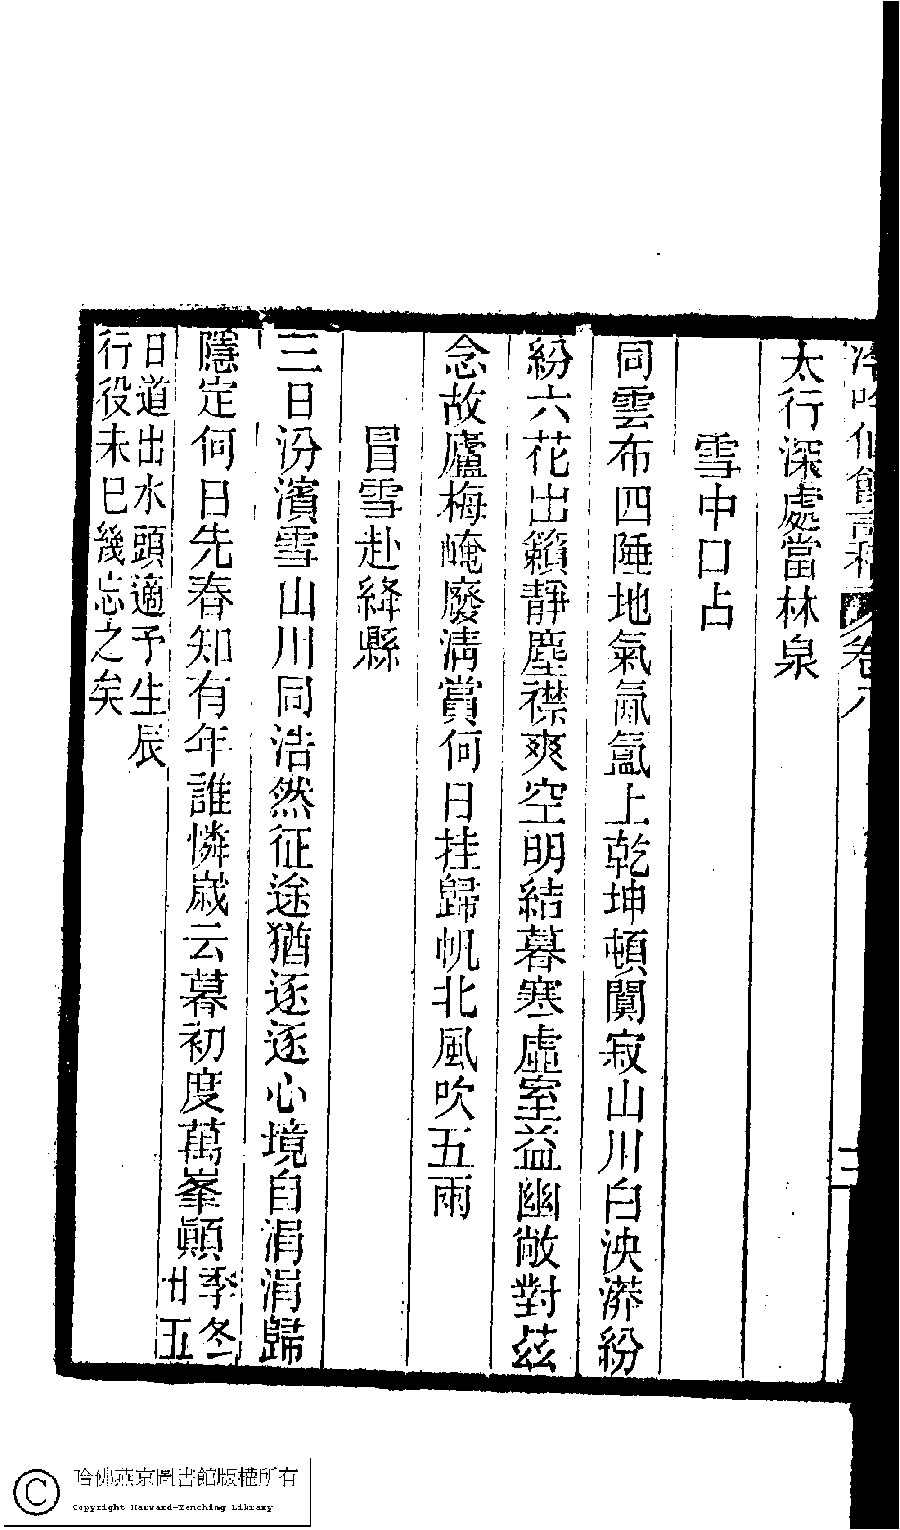 冷吟仙館詩稿 卷八 三
太行深處當林泉
雪中口占
同雲布四陲地氣氤氳上乾坤頓闃寂山川白泱漭紛
紛六花出籟靜塵襟爽空明結暮寒虛室益幽敞對茲
念故廬梅崦廢淸賞何日挂歸帆北風吹五雨
冒雪赴絳縣
三日汾濱雪山川同浩然征途猶逐逐心境自涓涓歸
隱定何日先春知有年誰憐歲云暮初度萬峯顚季冬廿五
日道出水頭適予生辰
行役未巳幾忘之矣
哈佛燕京圖書館版權所有
Copyright Harvard-Yenching Library